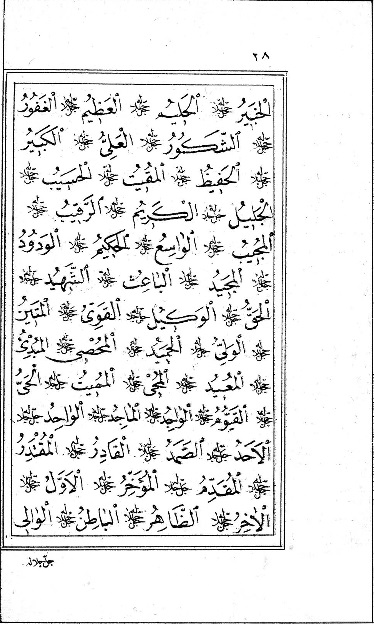 ٢٨
اَلْخَبِيرُ ﷻ اَلْحَلِيمُ ﷻ اَلْعَظِيمُ ﷻ اَلْغَفُورُ
ﷻ اَلشَّكُورُ ﷻ اَلْعَلِيُّ ﷻ اَلْكَبِيرُ
ﷻ اَلْحَفِيظُ ﷻ اَلْمُقِيتُ ﷻ اَلْحَسِيبُ ﷻ
اَلْجَلِيلُ ﷻ اَلْكَرِيمُ ﷻ اَلرَّقِيبُ ﷻ
اَلْمُجِيبُ ﷻ اَلْوَاسِعُ ﷻ اَلْحَكِيمُ ﷻ اَلْوَدُودُ
ﷻ اَلْمَجِيدُ ﷻ اَلْبَاعِثُ ﷻ اَلشَّهِيدُ ﷻ
اَلْحَقُّ ﷻ اَلْوَكِيلُ ﷻ اَلْقَوِيُّ ﷻ اَلْمَتِينُ
ﷻ اَلْوَلِيُّ ﷻ اَلْحَمِيدُ ﷻ اَلْمُحْصِي ﷻ اَلْمُبْدِئُ
ﷻ اَلْمُعِيدُ ﷻ اَلْمُحْيِي ﷻ اَلْمُمِيتُ ﷻ اَلْحَيُّ
ﷻ اَلْقَيُّومُ ﷻ اَلْوَاجِدُ ﷻ اَلْمَاجِدُ ﷻ اَلْوَاحِدُ ﷻ
اَلْاَحَدُ ﷻ اَلصَّمَدُ ﷻ اَلْقَادِرُ ﷻ اَلْمُقْتَدِرُ
ﷻ اَلْمُقَدِّمُ ﷻ اَلْمُؤَخِّرُ ﷻ اَلْاَوَّلُ ﷻ
اَلْاٰخِرُ ﷻ اَلظَّاهِرُ ﷻ اَلْبَاطِنُ ﷻ اَلْوَالِي
جل جلاله